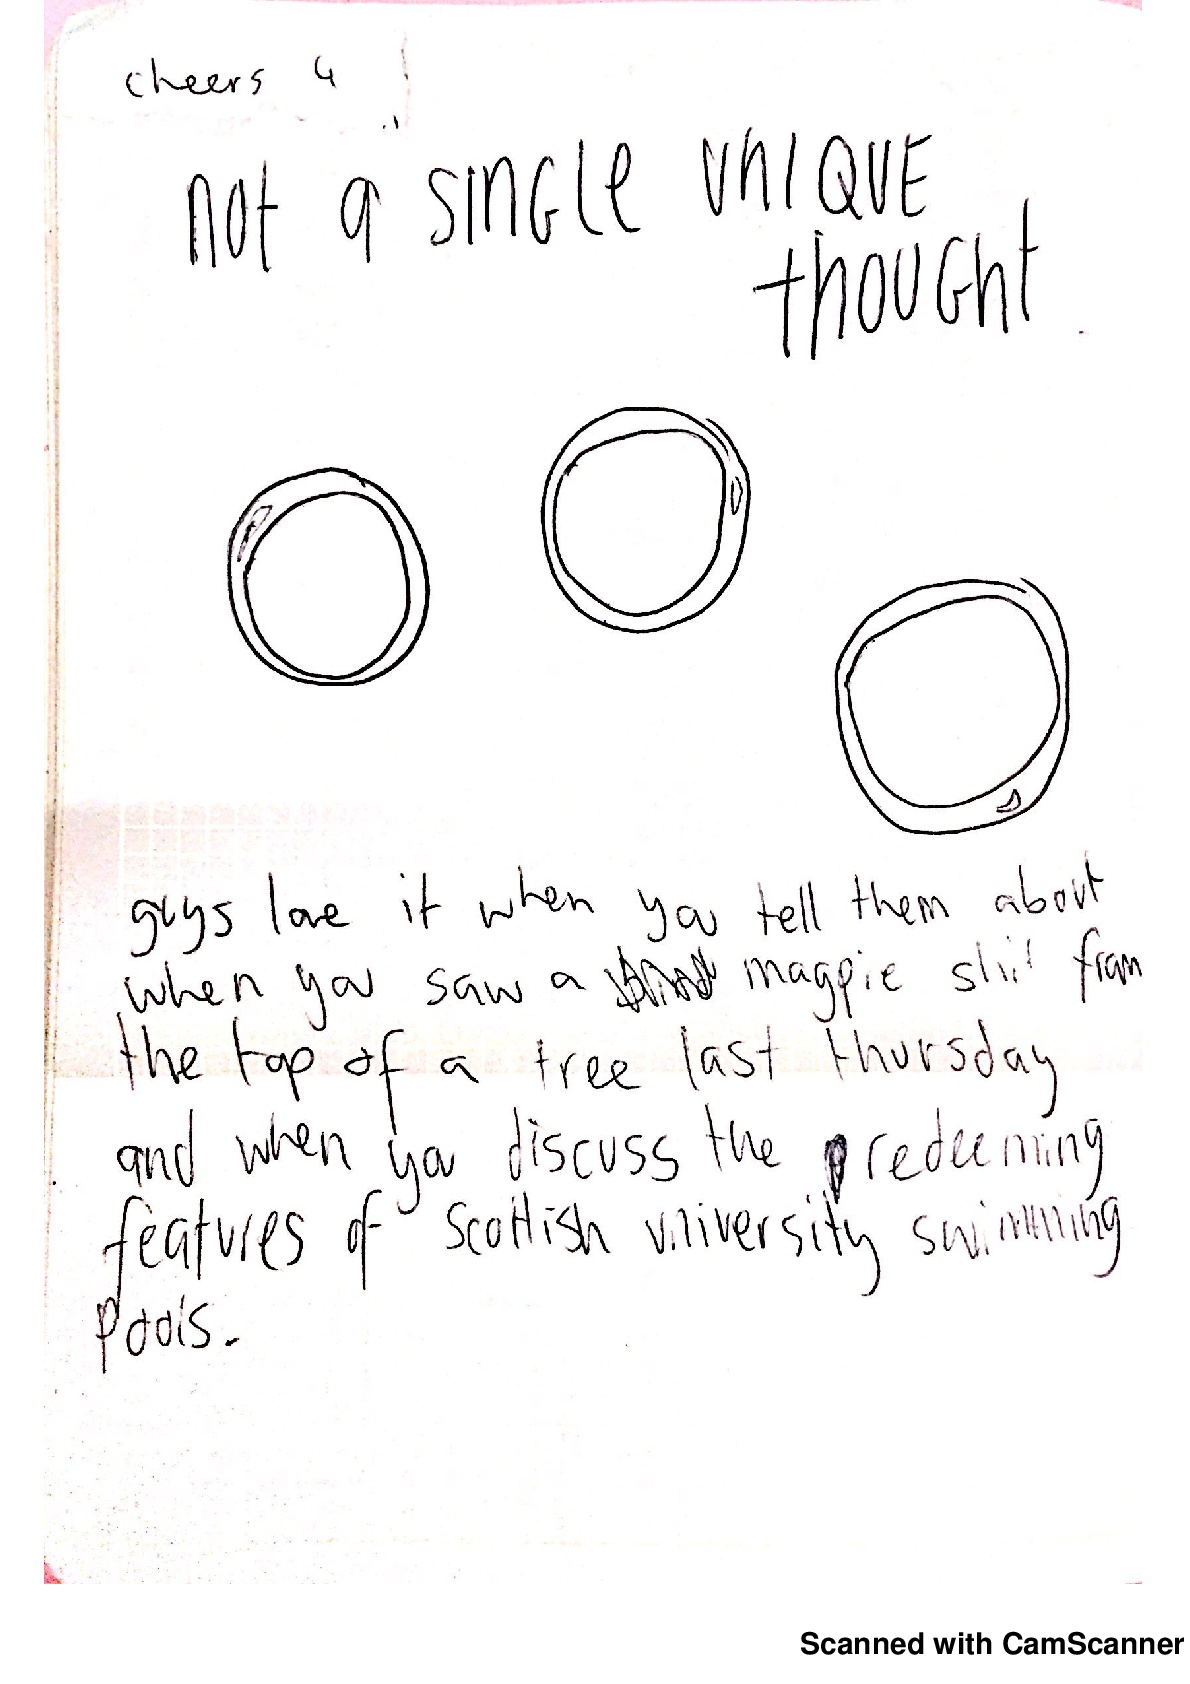 cheers 4
not a SINGLE UNIQUE
thOUGht
guys love it when you tell them about
when you saw a magpie shit from
the top of a tree last thursday
and when you discuss the redeeming
features of Scottish university swimming
pools.
Scanned with CamScanner